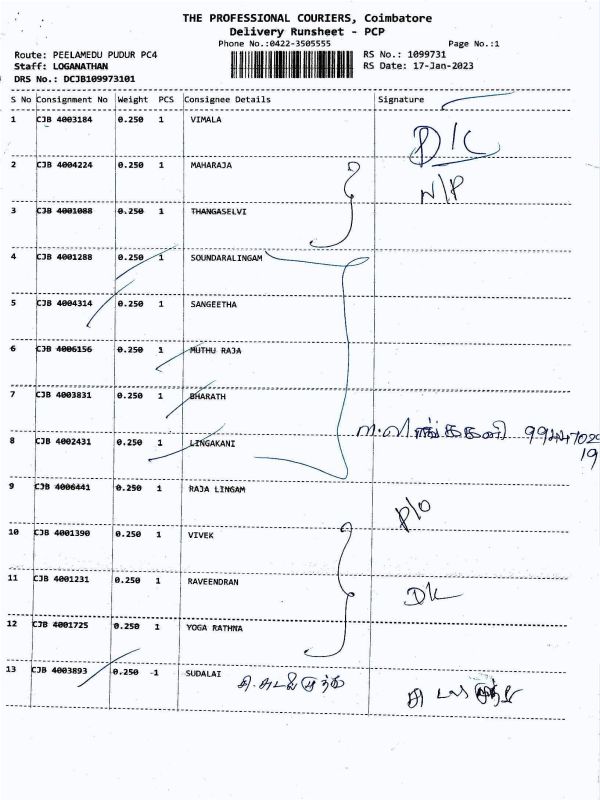 THE PROFESSIONAL COURIERS, Coimbatore
Delivery Runsheet - PCP
Phone No.:0422-3505555 Page No.:1
Route: PEELAMEDU PUDUR PC4 RS No.: 1099731
Staff: LOGANATHAN RS Date: 17-Jan-2023
DRS No.: DCJB109973101
S No Consignment No Weight PCS Consignee Details Signature
1 CJB 4003184 0.250 1 VIMALA D/C
2 CJB 4004224 0.250 1 MAHARAJA N/P
3 CJB 4001088 0.250 1 THANGASELVI
4 CJB 4001288 0.250 1 SOUNDARALINGAM
5 CJB 4004314 0.250 1 SANGEETHA
6 CJB 4006156 0.250 1 MUTHU RAJA
7 CJB 4003831 0.250 1 BHARATH
8 CJB 4002431 0.250 1 LINGAKANI
9 CJB 4006441 0.250 1 RAJA LINGAM P/O
10 CJB 4001390 0.250 1 VIVEK
11 CJB 4001231 0.250 1 RAVEENDRAN
12 CJB 4001725 0.250 1 YOGA RATHNA
13 CJB 4003893 0.250 -1 SUDALAI